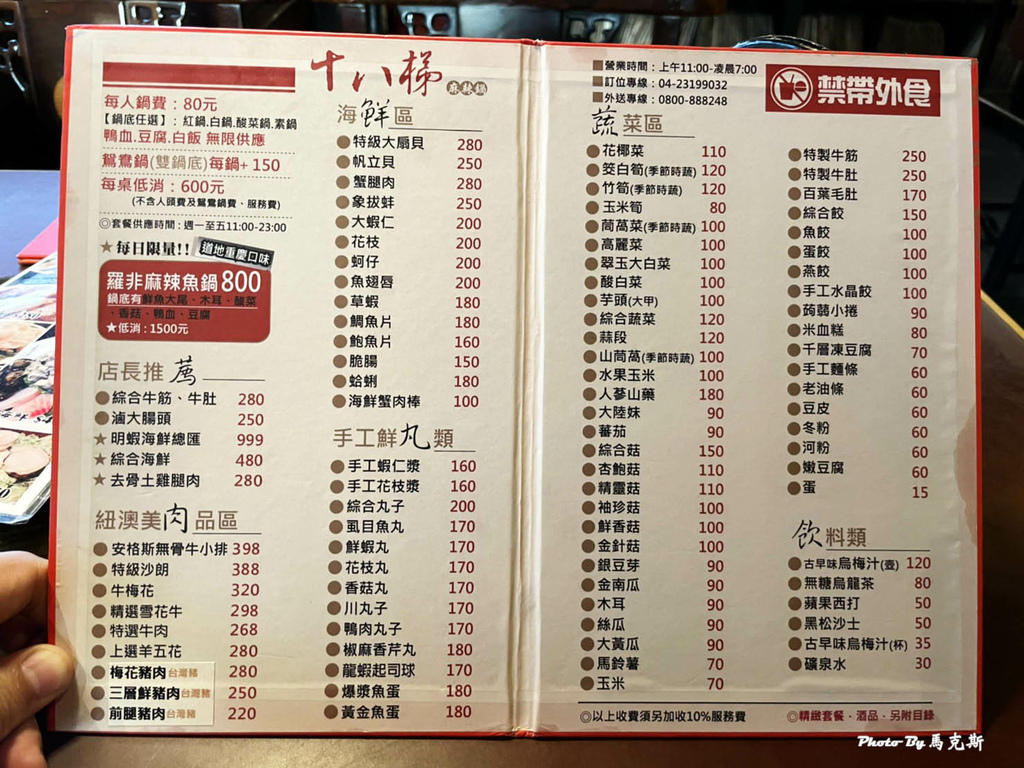 十八梯
麻辣鍋
每人鍋費：80元
【鍋底任選】：紅鍋.白鍋.酸菜鍋.素鍋
鴨血.豆腐.白飯 無限供應
鴛鴦鍋(雙鍋底)每鍋+150
每桌低消：600元
(不含人頭費及鴛鴦鍋費、服務費)
◎套餐供應時間：週一至五11:00-23:00
★每日限量!! 道地重慶口味
羅非麻辣魚鍋800
鍋底有鮮魚大尾、木耳、酸菜
、香菇、鴨血、豆腐
★低消：1500元
店長推薦
綜合牛筋、牛肚 280
滷大腸頭 250
★明蝦海鮮總匯 999
★綜合海鮮 480
★去骨土雞腿肉 280
紐澳美肉品區
安格斯無骨牛小排 398
特級沙朗 388
牛梅花 320
精選雪花牛 298
特選牛肉 268
上選羊五花 280
梅花豬肉台灣豬 280
三層鮮豬肉台灣豬 250
前腿豬肉台灣豬 220
海鮮區
特級大扇貝 280
帆立貝 250
蟹腿肉 280
象拔蚌 250
大蝦仁 200
花枝 200
蚵仔 200
魚翅唇 200
草蝦 180
鯛魚片 180
鮑魚片 160
脆腸 150
蛤蜊 180
海鮮蟹肉棒 100
手工鮮丸類
手工蝦仁漿 160
手工花枝漿 160
綜合丸子 200
虱目魚丸 170
鮮蝦丸 170
花枝丸 170
香菇丸 170
川丸子 170
鴨肉丸子 170
椒麻香芹丸 180
龍蝦起司球 170
爆漿魚蛋 180
黃金魚蛋 180
營業時間：上午11:00-凌晨7:00
訂位專線：04-23199032
外送專線：0800-888248
禁帶外食
蔬菜區
花椰菜 110
筊白筍(季節時蔬) 120
竹筍(季節時蔬) 120
玉米筍 80
茼萵菜(季節時蔬) 100
高麗菜 100
翠玉大白菜 100
酸白菜 100
芋頭(大甲) 100
綜合蔬菜 120
蒜段 120
山茼萵(季節時蔬) 100
水果玉米 100
人蔘山藥 180
大陸妹 90
蕃茄 90
綜合菇 150
杏鮑菇 110
精靈菇 110
袖珍菇 100
鮮香菇 100
金針菇 100
銀豆芽 90
金南瓜 90
木耳 90
絲瓜 90
大黃瓜 90
馬鈴薯 70
玉米 70
特製牛筋 250
特製牛肚 250
百葉毛肚 170
綜合餃 150
魚餃 100
蛋餃 100
燕餃 100
手工水晶餃 100
蒟蒻小捲 90
米血糕 80
千層凍豆腐 70
手工麵條 60
老油條 60
豆皮 60
冬粉 60
河粉 60
嫩豆腐 60
蛋 15
飲料類
古早味烏梅汁(壺) 120
無糖烏龍茶 80
蘋果西打 50
黑松沙士 50
古早味烏梅汁(杯) 35
礦泉水 30
◎以上收費須另加收10%服務費
◎精緻套餐、酒品、另附目錄
Photo By 馬克斯